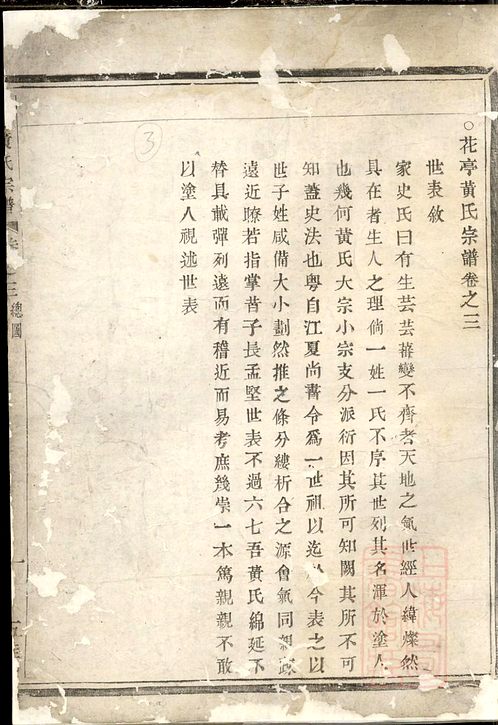 ○花亭黃氏宗譜卷之三
世表敘
家史氏曰有生芸芸蕃變不齊者天地之氣世經人緯燦然
具在者生人之理倘一姓一氏不序其世列其名渾於塗人
也幾何黃氏大宗小宗支分派衍因其所可知闕其所不可
知蓋史法也粵自江夏尚書令爲一世祖以迄 今表之以
世子姓咸備大小劃然推之條分縷析合之源會氣同親疎
遠近瞭若指掌昔子長孟堅世表不過六七吾黃氏綿延不
替具載殫列遠而有稽近而易考庶幾崇一本篤親親不敢
以塗人視述世表
黃氏宗譜
三 總圖
一
3